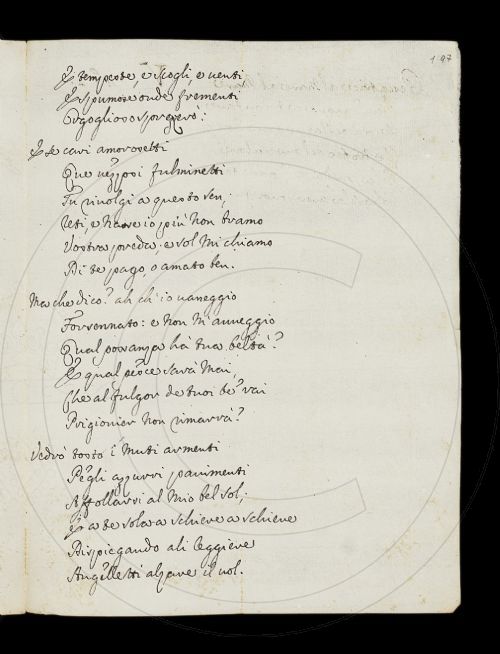 197
E tempeste, e scogli, e venti,
E spumose onde frementi
Orgoglioso sprezzerò:
E se cari amorosetti
Que vezzosi fulminetti
Tu rivolgi a questo sen,
Teti, e Nave io più non bramo
Vostra preda, e sol mi chiamo
Di te pago, o amato ben.
Ma che dico? ah ch'io vaneggio
Forsennato: e non m'avveggio
Qual possanza hà tua beltà?
E qual pesce sarà mai,
Che al fulgor de tuoi be' rai
Prigionier non rimarrà?
Vedrò tosto i muti armenti
Pegli azzurri pavimenti
Affollarsi al mio bel sol;
E a te solo a schiere a schiere
Dispiegando ali leggiere
Augelletti alzare il vol.